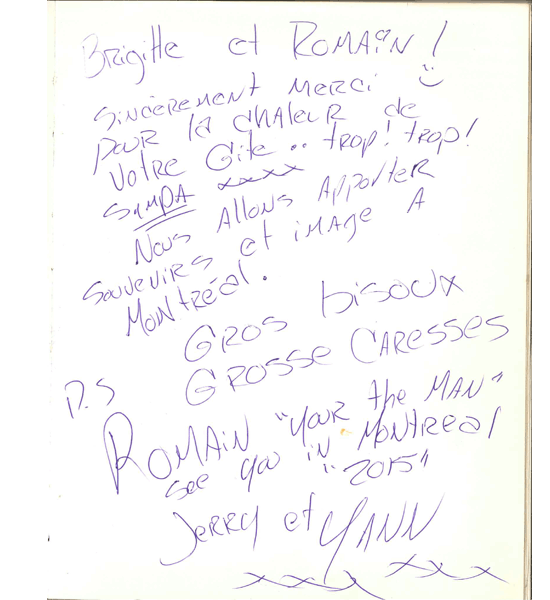 Brigitte et Romain !
Sincèrement merci
pour la chaleur de
votre Gite .. trop! trop!
Sympa xxxx
Nous allons apporter
souvenirs et image a
Montréal.
Gros bisoux
Grosse Caresses
P.S
Romain "your the man"
see you in Montreal
"2015"
Jerry et Yann
xxx xxx